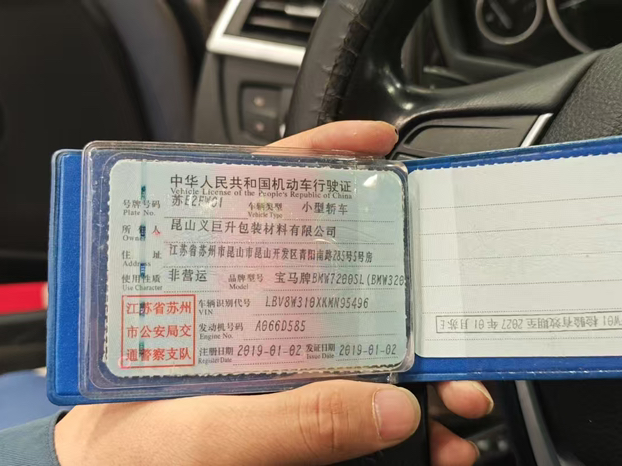 中华人民共和国机动车行驶证
Vehicle License of the People's Republic of China
号牌号码 苏E2FW01 车辆类型 小型轿车
Plate No. Vehicle Type
所有人 昆山义巨升包装材料有限公司
Owner
住址 江苏省苏州市昆山市昆山开发区青阳南路285号5号房
Address
使用性质 非营运 品牌型号 宝马牌BMW7200SL(BMW320
Use Character Model
江苏省苏州
市公安局交
通警察支队
车辆识别代号 LBV8W310XKMN95496
VIN
发动机号码 A066D585
Engine No.
注册日期 2019-01-02 发证日期 2019-01-02
Register Date Issue Date
W01检验有效期至2027年01月苏E